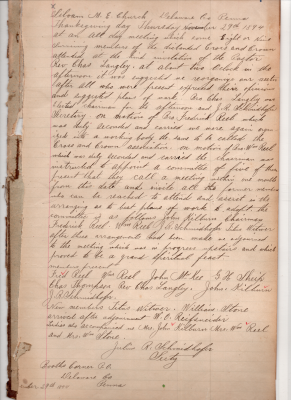 Siloam M. E. Church Delaware Co Penna
Thanksgiving day Thursday November 29th 1894
at an all day meeting which some Eight or Nine
surviving members of the disbanded Cross and Crown
attended at the kind invitation of the Pastor
Rev Chas Langley at about three o'clock in the
afternoon it was suggested we reorganize our
after all who were present expressed their opinion
and suggested plans of work. Bro Chas Langley was
Elected Chairman for the afternoon and J. R. Schmidhofer
Secretary, on motion of Bro Fredrick Reel which
was duly seconded and carried we were again
into a working body the same to be called the
Cross and Crown association. on motion of Bro Wm Reel
which was duly seconded and carried the chairman was
instructed to appoint a committee of five of them
present that they call a meeting within months
from this date and invite all the former members
who can be reached to attend and assist in the
arranging as to best plans for work. the
committee is as follows John Kilburn Chairman
Fredrick Reel Wm Reel J. R. Schmidhofer Silas Witmer
after these arrangements had been made we adjourned
to the meeting which was in progress upstairs and which
proved to be a grand spiritual feast.
members present
Fred Reel Wm Reel John McGee G. H. Shirk
Chas Thompson Rev Chas Langley, John Kilburn
J. R. Schmidhofer
New members Silas Witmer, William Stone
arrived after adjournment W. C. Reifsneider
Ladies who accompanied us Mrs John Kilburn Mrs Wm Reel
and Mrs Wm Stone.
Julius R. Schmidhofer
Secty
Booths Corner P.O.
Delaware Co
Penna